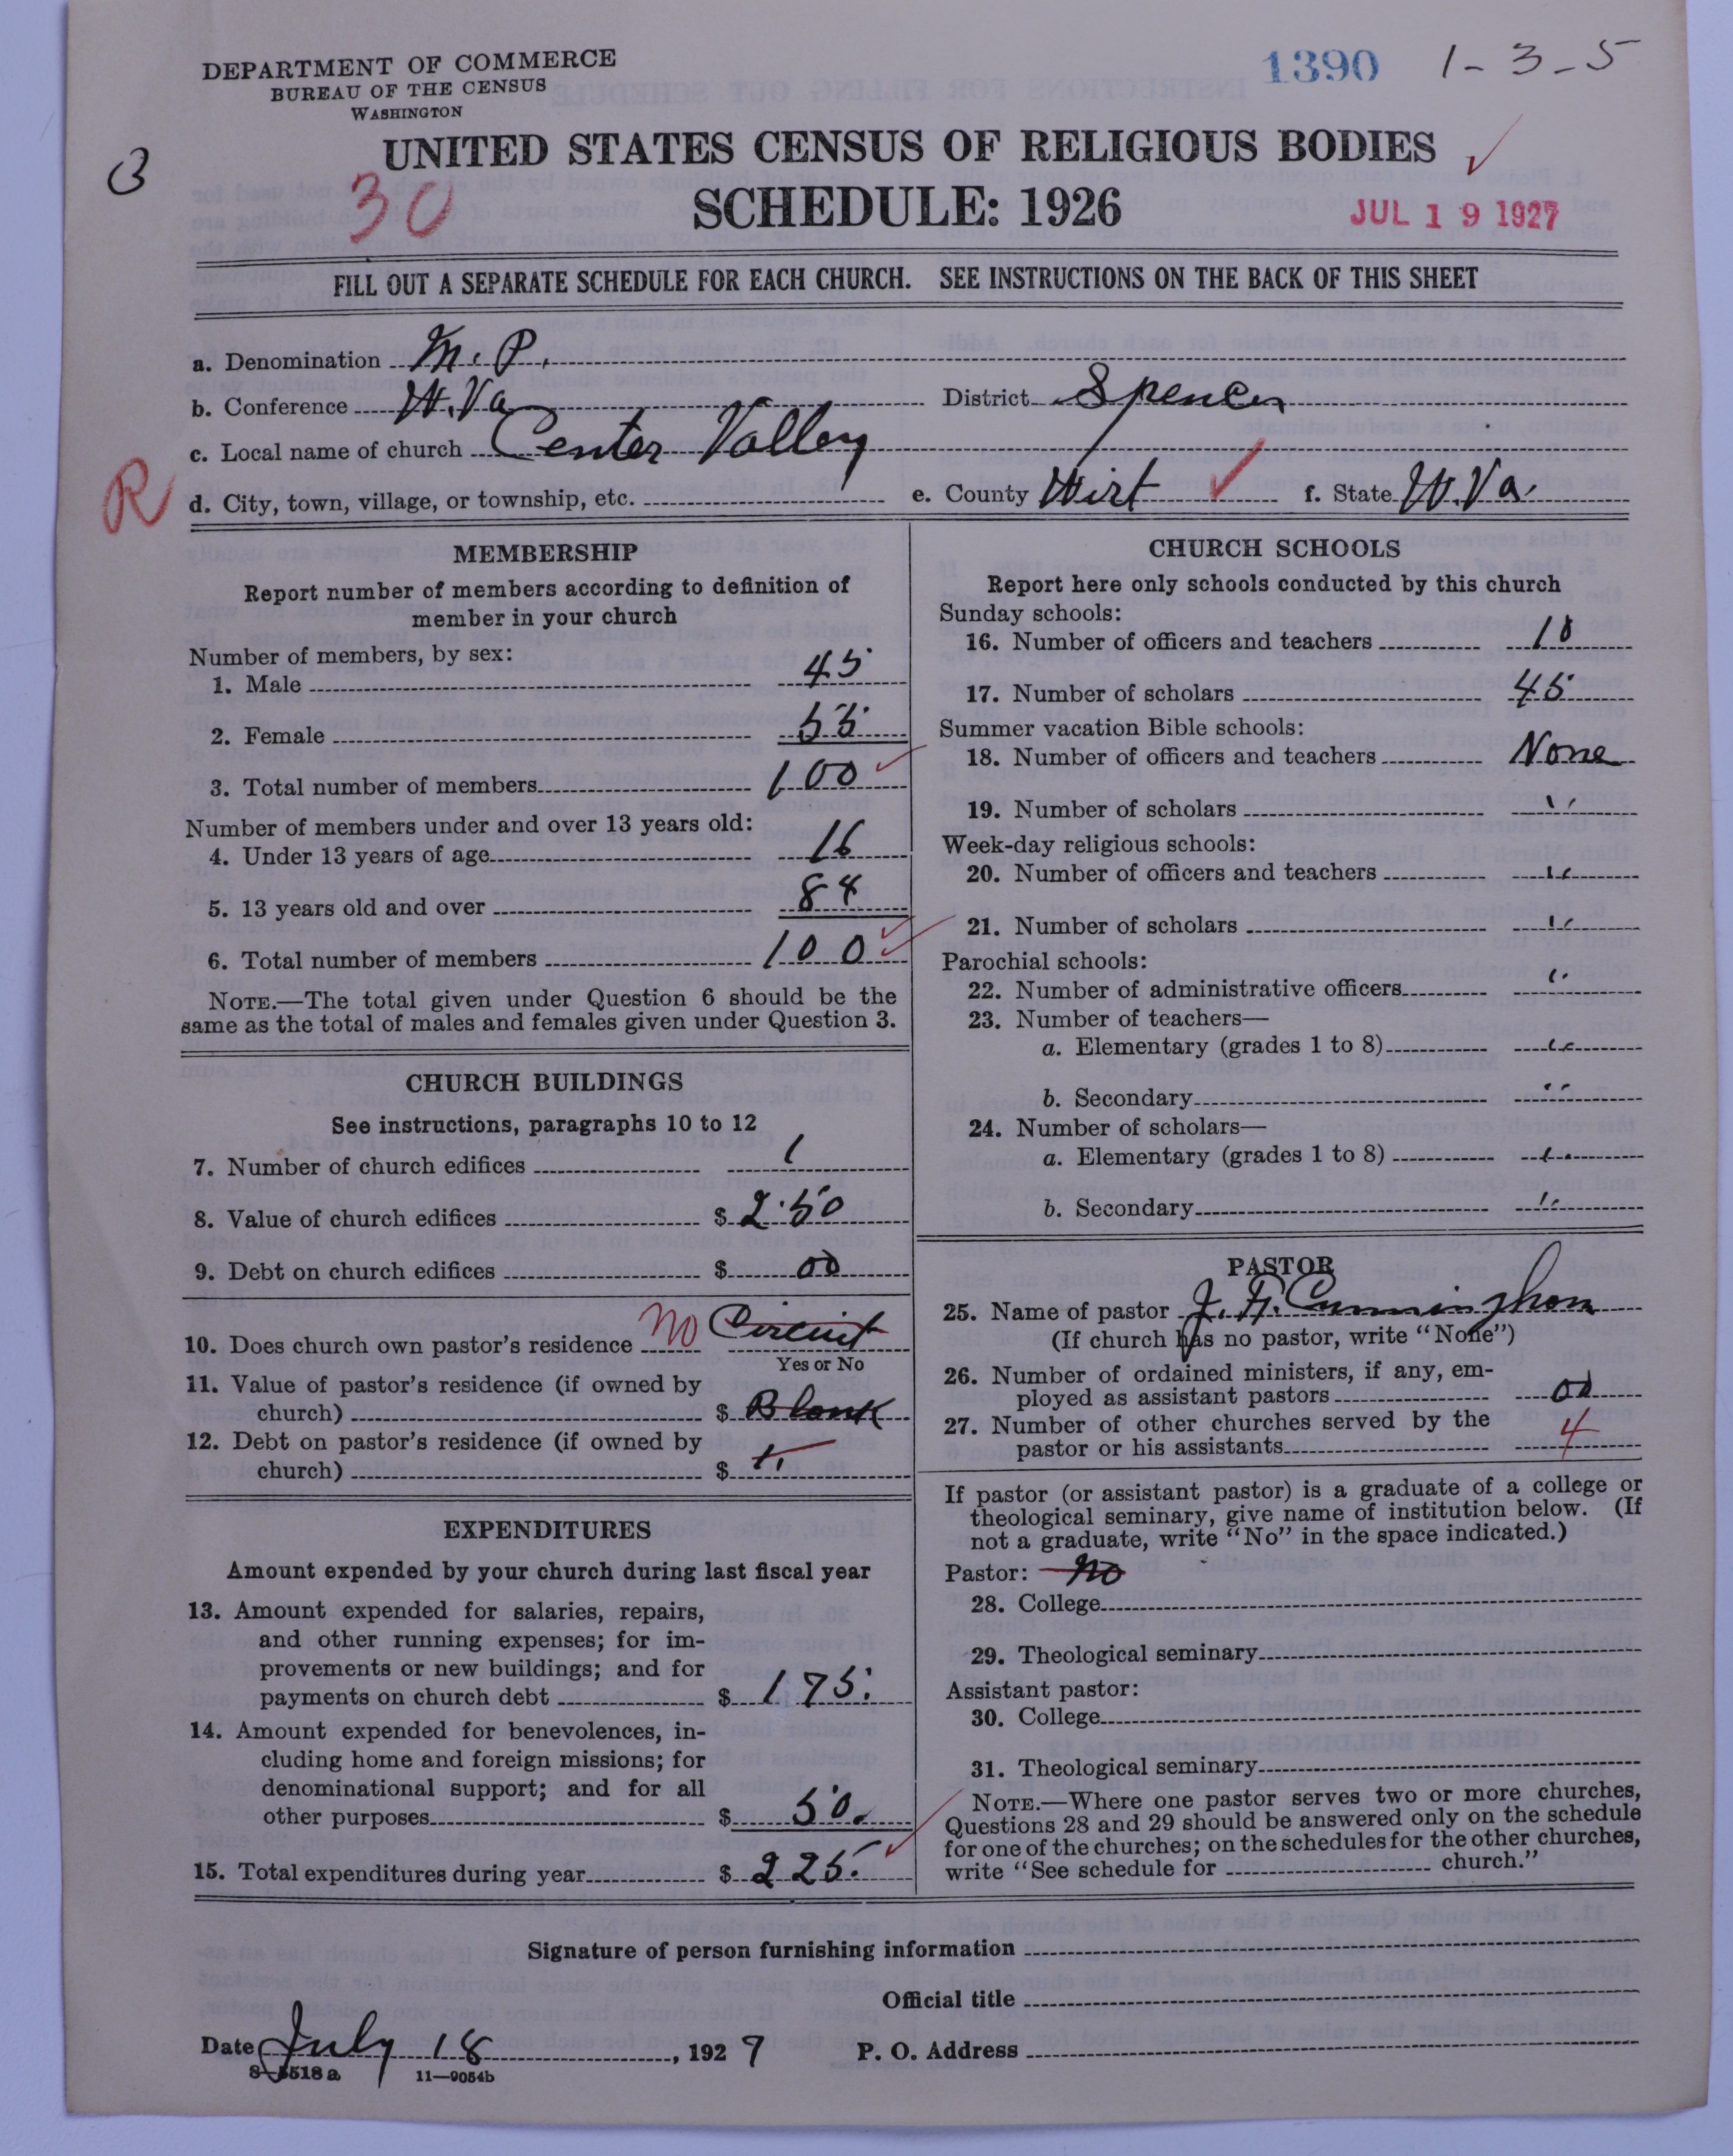 DEPARTMENT OF COMMERCE
BUREAU OF THE CENSUS
WASHINGTON
1390 1-3-5
UNITED STATES CENSUS OF RELIGIOUS BODIES
30
SCHEDULE: 1926
JUL 19 1927
FILL OUT A SEPARATE SCHEDULE FOR EACH CHURCH. SEE INSTRUCTIONS ON THE BACK OF THIS SHEET
a. Denomination M. P.
b. Conference W. Va District Spencer
c. Local name of church Center Valley
R
d. City, town, village, or township, etc. e. County Wirt f. State W. Va.
MEMBERSHIP
Report number of members according to definition of
member in your church
Number of members, by sex:
1. Male 45
2. Female 55
3. Total number of members 100
Number of members under and over 13 years old:
4. Under 13 years of age 16
5. 13 years old and over 84
6. Total number of members 100
NOTE.—The total given under Question 6 should be the
same as the total of males and females given under Question 3.
CHURCH BUILDINGS
See instructions, paragraphs 10 to 12
7. Number of church edifices 1
8. Value of church edifices $ 250
9. Debt on church edifices $ 00
10. Does church own pastor's residence No Circuit
Yes or No
11. Value of pastor's residence (if owned by
church) $ Blank
12. Debt on pastor's residence (if owned by
church) $ "
EXPENDITURES
Amount expended by your church during last fiscal year
13. Amount expended for salaries, repairs,
and other running expenses; for im-
provements or new buildings; and for
payments on church debt $ 175.
14. Amount expended for benevolences, in-
cluding home and foreign missions; for
denominational support; and for all
other purposes $ 50.
15. Total expenditures during year $ 225.
CHURCH SCHOOLS
Report here only schools conducted by this church
Sunday schools:
16. Number of officers and teachers 10
17. Number of scholars 45
Summer vacation Bible schools:
18. Number of officers and teachers None
19. Number of scholars "
Week-day religious schools:
20. Number of officers and teachers "
21. Number of scholars "
Parochial schools:
22. Number of administrative officers "
23. Number of teachers—
a. Elementary (grades 1 to 8) "
b. Secondary "
24. Number of scholars—
a. Elementary (grades 1 to 8) "
b. Secondary "
PASTOR
25. Name of pastor J. F. Cunningham
(If church has no pastor, write "None")
26. Number of ordained ministers, if any, em-
ployed as assistant pastors 00
27. Number of other churches served by the
pastor or his assistants 4
If pastor (or assistant pastor) is a graduate of a college or
theological seminary, give name of institution below. (If
not a graduate, write "No" in the space indicated.)
Pastor: No
28. College
29. Theological seminary
Assistant pastor:
30. College
31. Theological seminary
NOTE.—Where one pastor serves two or more churches,
Questions 28 and 29 should be answered only on the schedule
for one of the churches; on the schedules for the other churches,
write "See schedule for church."
Signature of person furnishing information
Official title
Date July 18, 1927 P. O. Address
8—5518 a 11—9054b